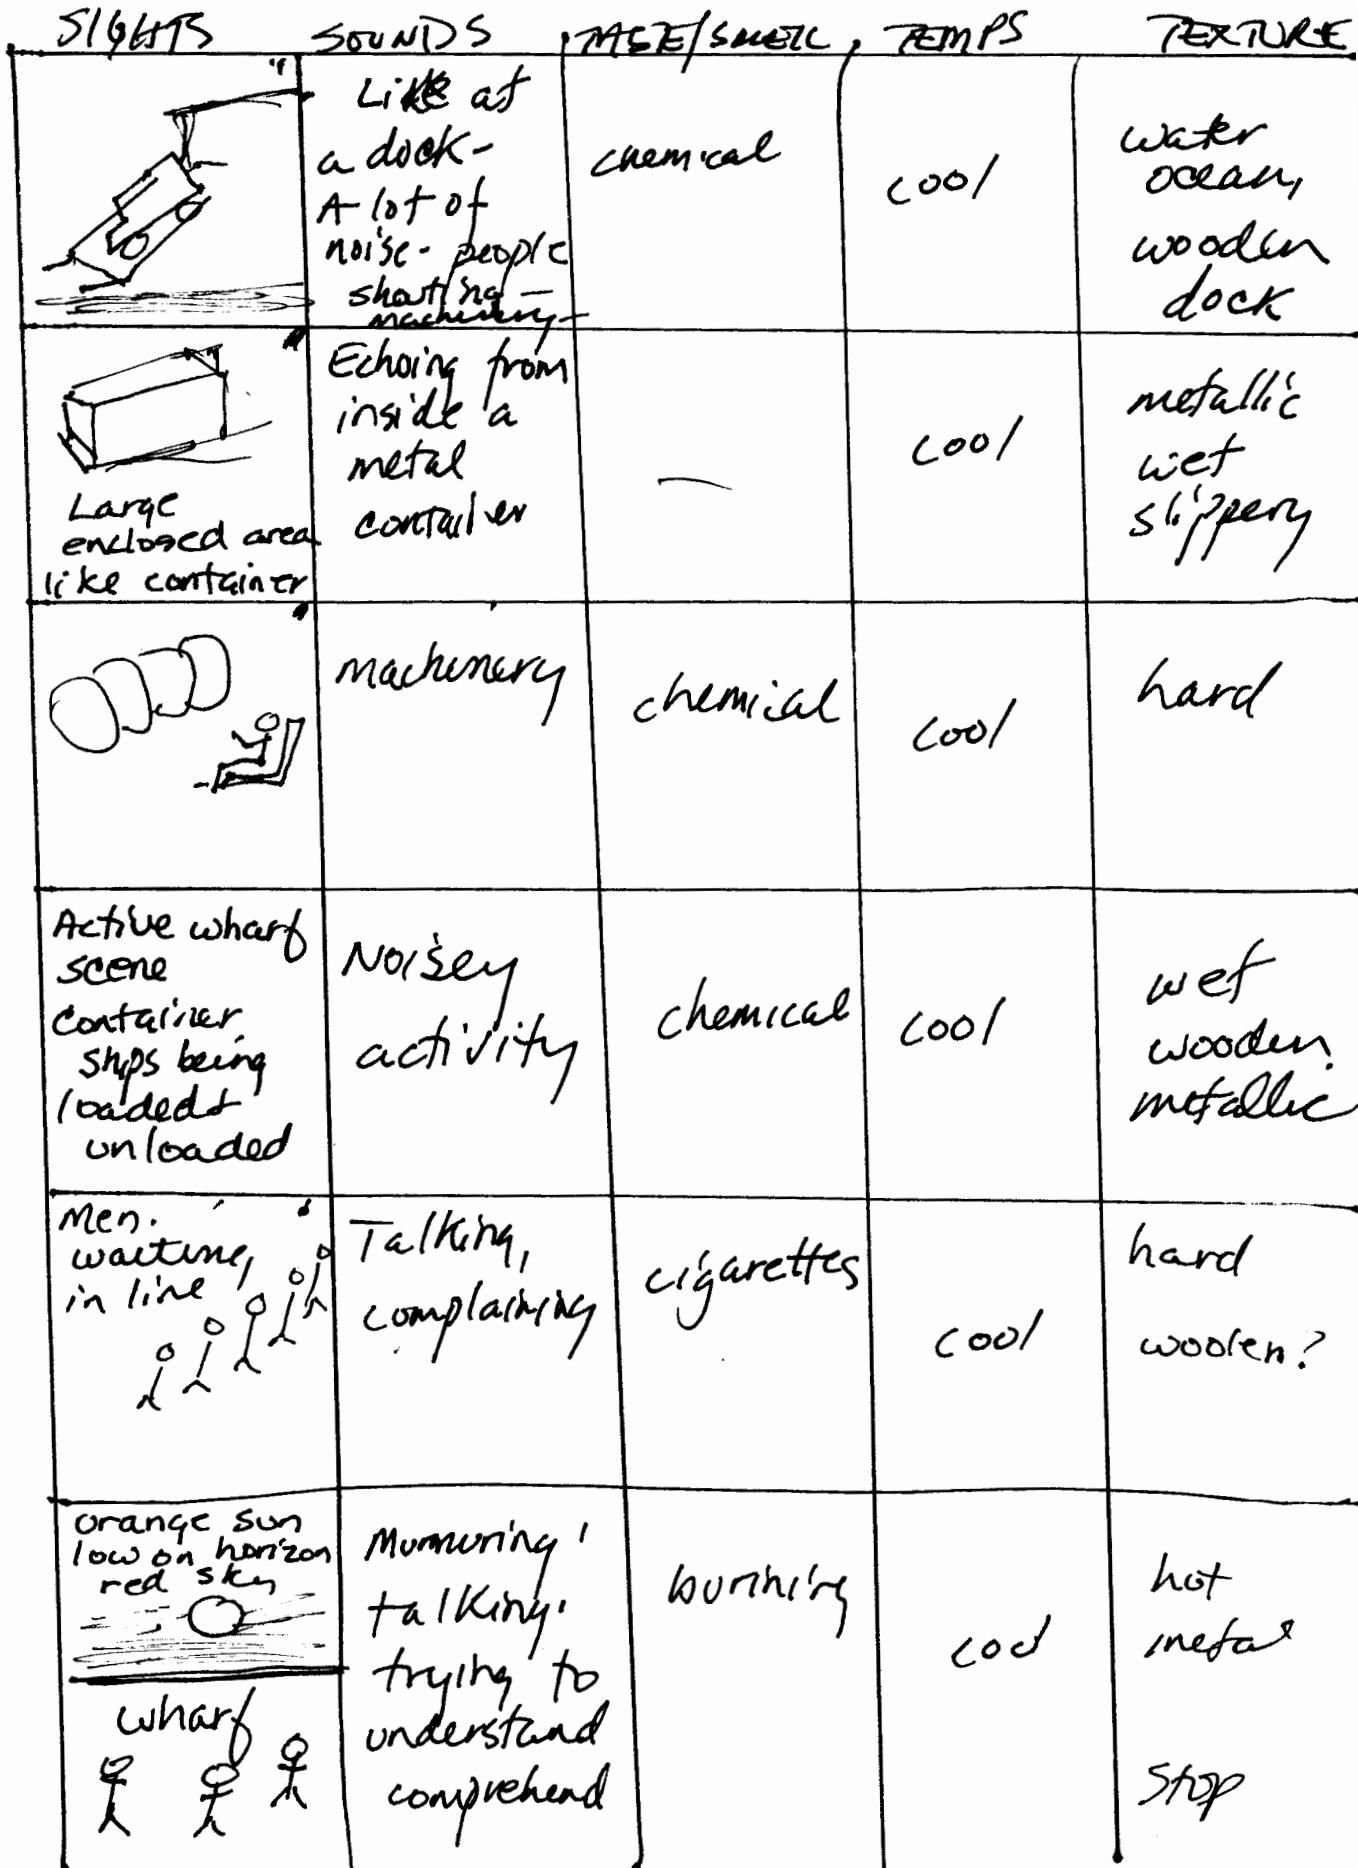 SIGHTS SOUNDS TASTE/SMELL TEMPS TEXTURE
Like at
a dock-
A lot of
noise- people
shouting-
machinery-
chemical
cool
water
ocean,
wooden
dock
Large
enclosed area
like container
Echoing from
inside a
metal
container
—
cool
metallic
wet
slippery
machinery
chemical
cool
hard
Active wharf
scene
Container
ships being
loaded +
unloaded
Noisey
activity
chemical
cool
wet
wooden
metallic
Men.
waiting,
in line
Talking,
complaining
cigarettes
cool
hard
woolen?
orange sun
low on horizon
red sky
wharf
Murmuring,
talking.
trying to
understand
comprehend
burning
cool
hot
metal
Stop